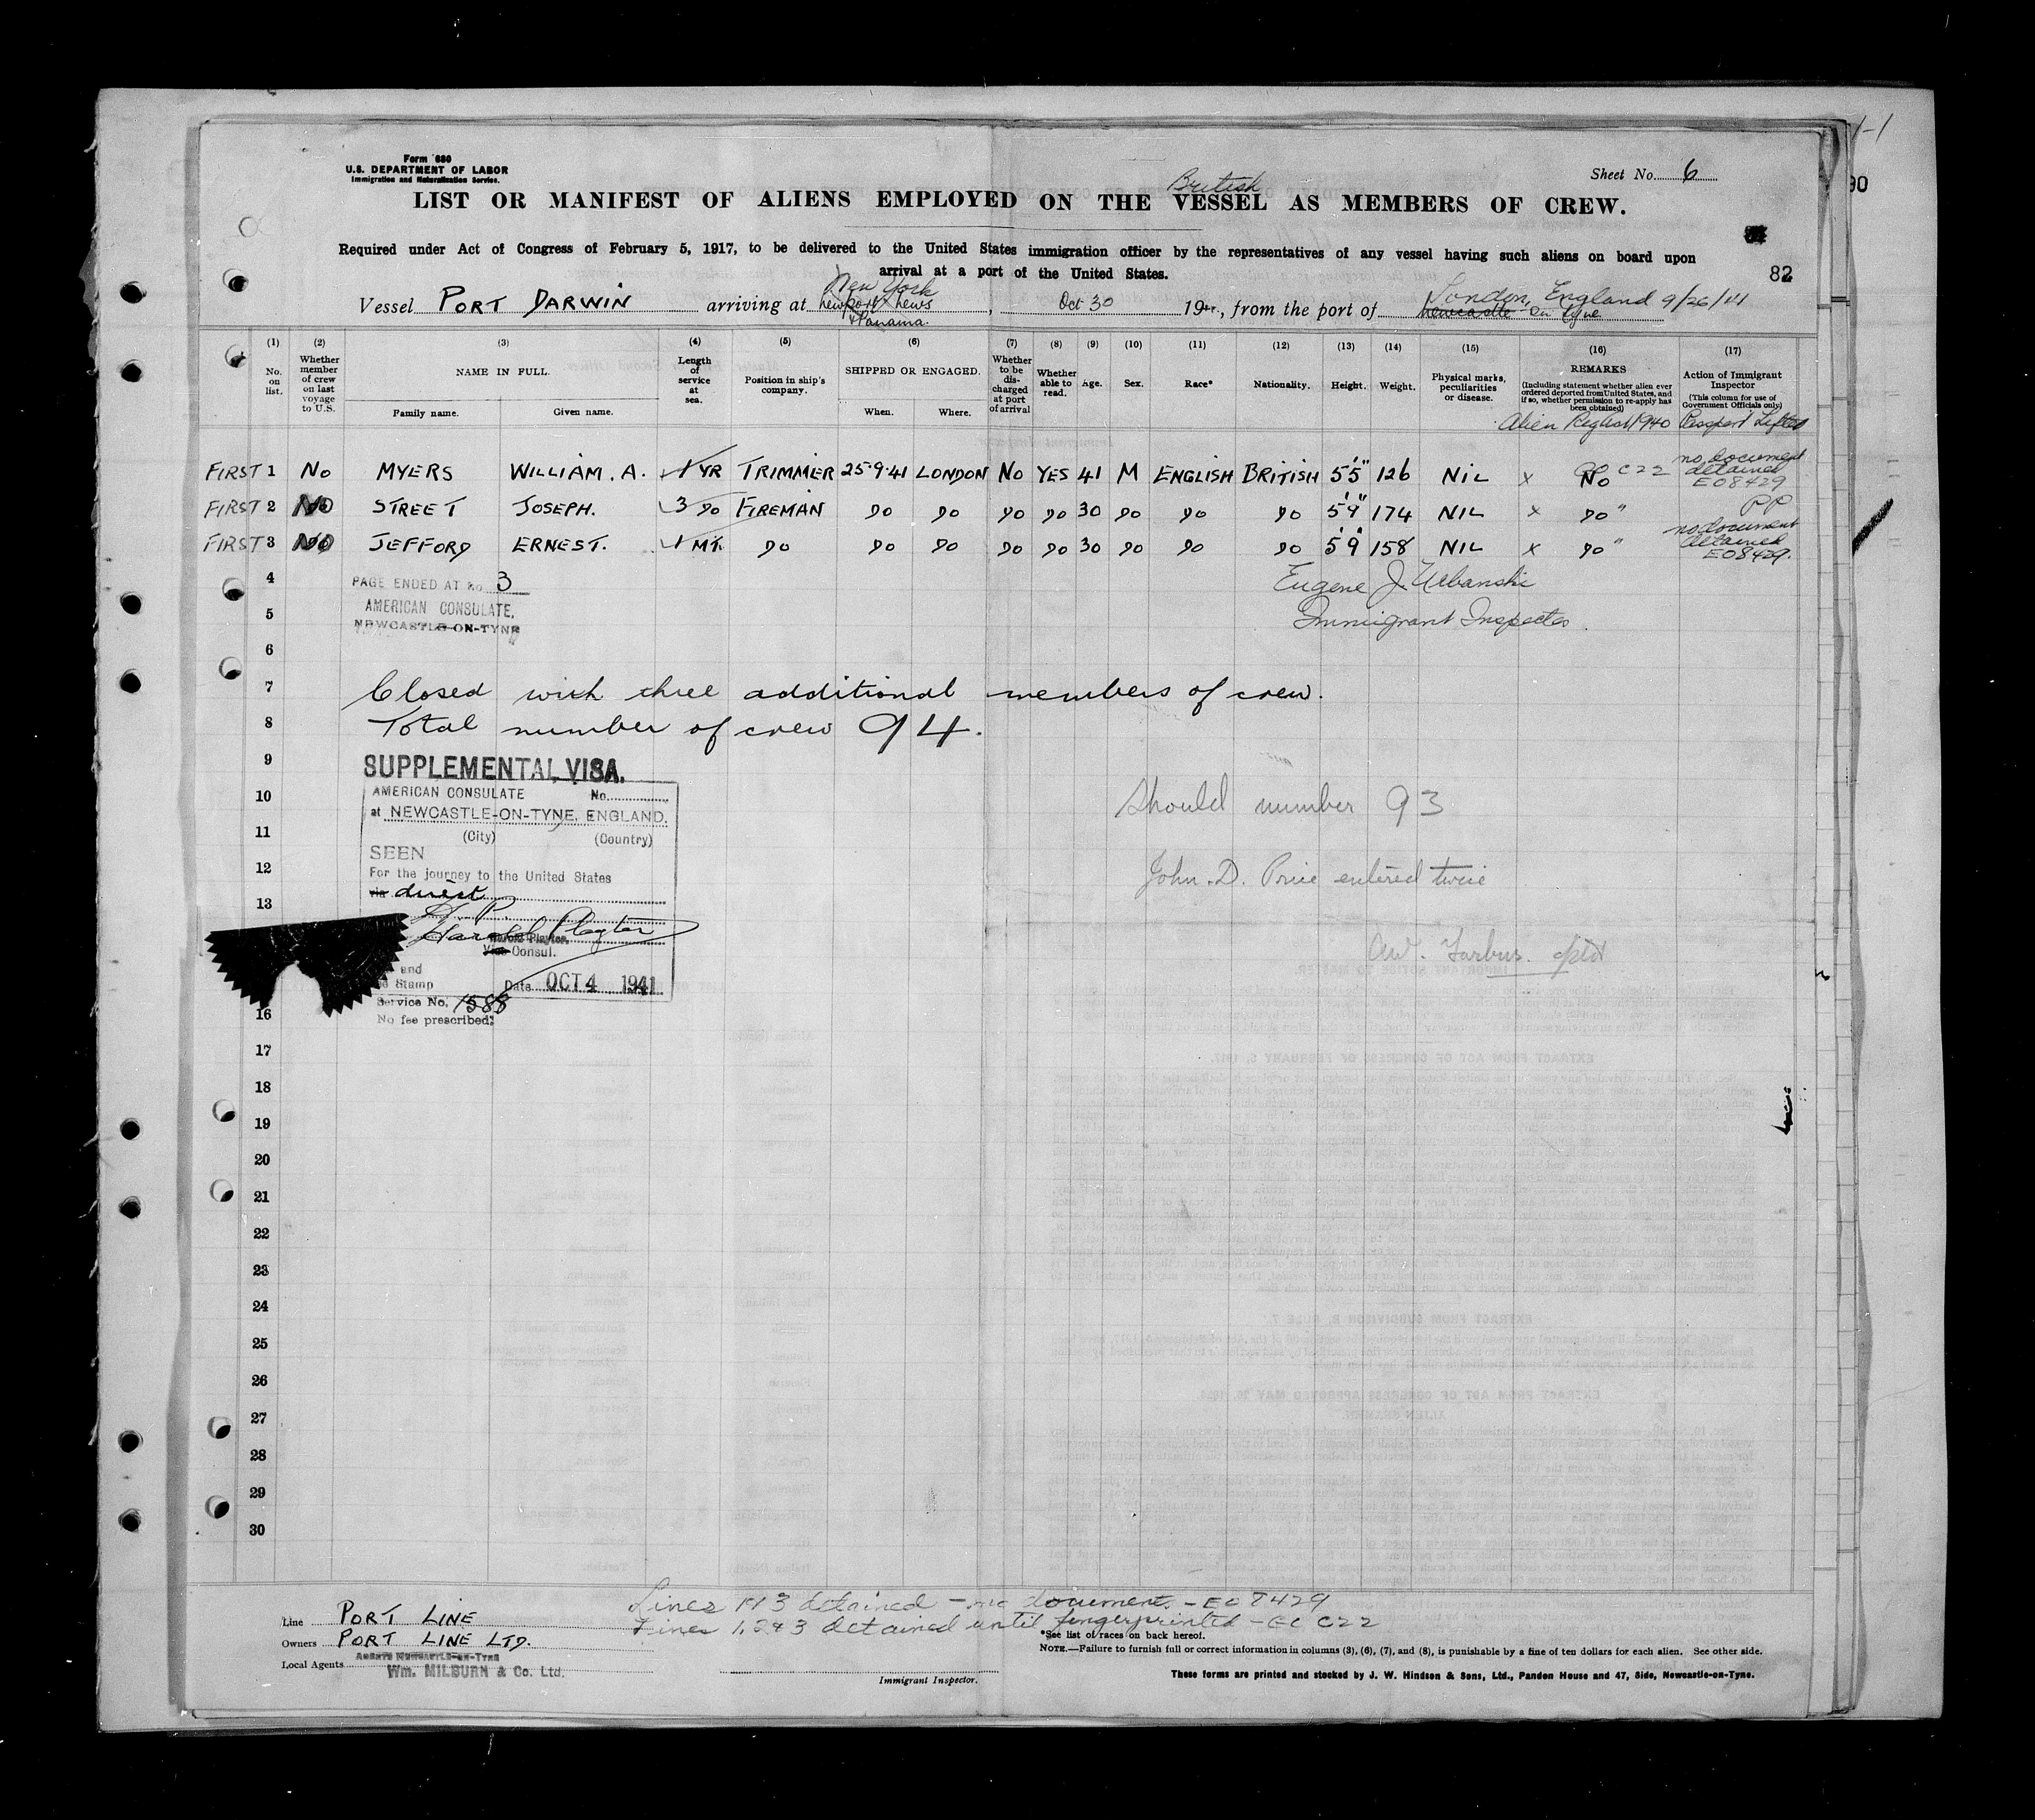 Form 680
U.S. DEPARTMENT OF LABOR
Immigration and Naturalization Service.
Sheet No. 6
British
LIST OR MANIFEST OF ALIENS EMPLOYED ON THE VESSEL AS MEMBERS OF CREW.
90
Required under Act of Congress of February 5, 1917, to be delivered to the United States immigration officer by the representatives of any vessel having such aliens on board upon
arrival at a port of the United States.
82
New York
London, England 9/26/41
Vessel PORT DARWIN arriving at Newport News , Oct 30 19 , from the port of Newcastle on Tyne
& Panama.
(1) (2) (3) (4) (5) (6) (7) (8) (9) (10) (11) (12) (13) (14) (15) (16) (17)
No. on list.
Whether member of crew on last voyage to U.S.
NAME IN FULL.
Family name. Given name.
Length of service at sea.
Position in ship's company.
SHIPPED OR ENGAGED.
When. Where.
Whether to be discharged at port of arrival
Whether able to read.
Age.
Sex.
Race*
Nationality.
Height.
Weight.
Physical marks, peculiarities or disease.
REMARKS
(Including statement whether alien ever ordered deported from United States, and if so, whether permission to re-apply has been obtained)
Action of Immigrant Inspector
(This column for use of Government Officials only)
Alien Reg Act 1940 Passport Lifted
FIRST 1 No MYERS WILLIAM. A. 1 YR TRIMMER 25·9·41 LONDON No YES 41 M ENGLISH BRITISH 5'5" 126 NIL x No C22 no document detained EO8429
FIRST 2 NO STREET JOSEPH. 3 DO FIREMAN DO DO DO DO 30 DO DO DO 5'9" 174 NIL x DO " PP
FIRST 3 NO JEFFORD ERNEST. 1 MT. DO DO DO DO DO 30 DO DO DO 5'9" 158 NIL x DO " no document detained EO8429.
4
PAGE ENDED AT No. 3
Eugene J. Urbanski
5
AMERICAN CONSULATE,
NEWCASTLE-ON-TYNE
Immigrant Inspector
6
7
Closed with three additional members of crew.
8
Total number of crew 94.
9
SUPPLEMENTAL VISA.
10
AMERICAN CONSULATE No.
Should number 93
at NEWCASTLE-ON-TYNE, ENGLAND.
11
(City) (Country)
SEEN
12
For the journey to the United States
John. D. Price entered twice
via direct
13
Harold Playter
Harold Playter.
Vice Consul.
and
Stamp
Date OCT 4 1941
Service No. 1588
16
No fee prescribed:
17
18
19
20
21
22
23
24
25
26
27
28
29
30
Lines 1+3 detained - no document. - EO 8429
Line PORT LINE
Lines 1, 2+3 detained until fingerprinted - EC C22
*See list of races on back hereof.
Owners PORT LINE LTD.
NOTE.—Failure to furnish full or correct information in columns (3), (6), (7), and (8), is punishable by a fine of ten dollars for each alien. See other side.
AGENTS NEWCASTLE-ON-TYNE
Local Agents Wm. MILBURN & Co. Ltd.
Immigrant Inspector.
These forms are printed and stocked by J. W. Hindson & Sons, Ltd., Pandon House and 47, Side, Newcastle-on-Tyne.